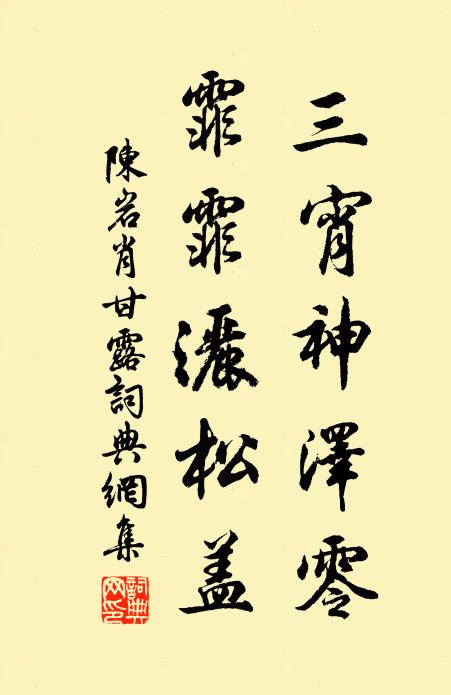 三宵神澤零
霏霏灑松蓋
陳岩肖甘露詞典網集
詞典網印